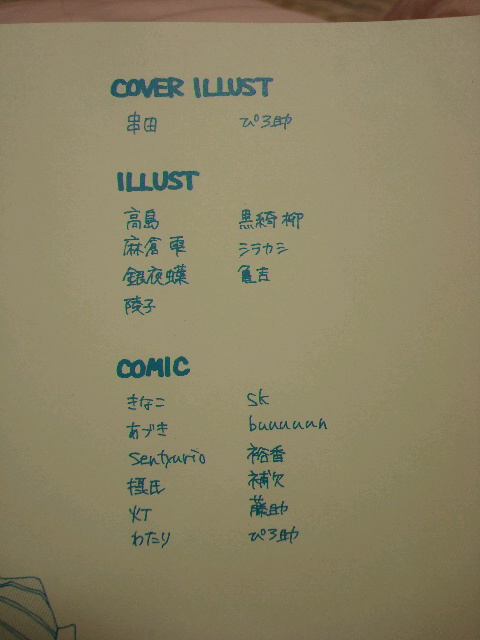 COVER ILLUST
串田 ぴろ助
ILLUST
高島 黒綺柳
麻倉雫 シラカシ
銀夜蝶 亀吉
陵子
COMIC
きなこ sk
あづき buuuuun
sentxurio 裕香
摂氏 補欠
灯 藤助
わたり ぴろ助